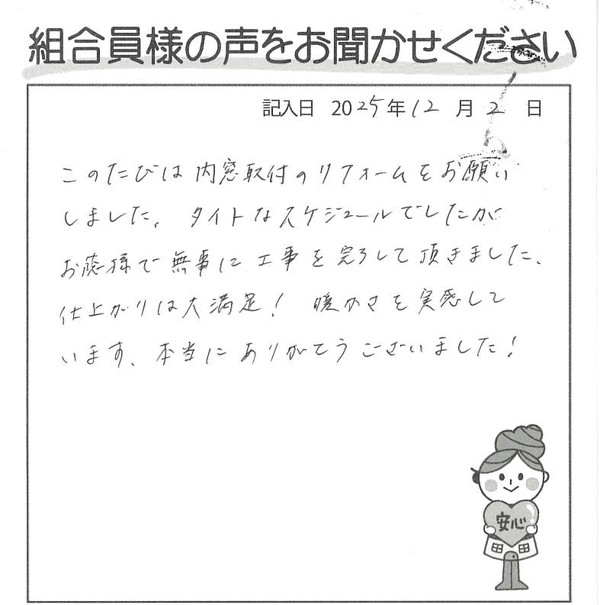 組合員様の声をお聞かせください
記入日 2025年12月2日
このたびは内窓取付のリフォームをお願い
しました。タイトなスケジュールでしたが
お陰様で無事に工事を完了して頂きました。
仕上がりは大満足！ 暖かさを実感して
います。本当にありがとうございました！
安心